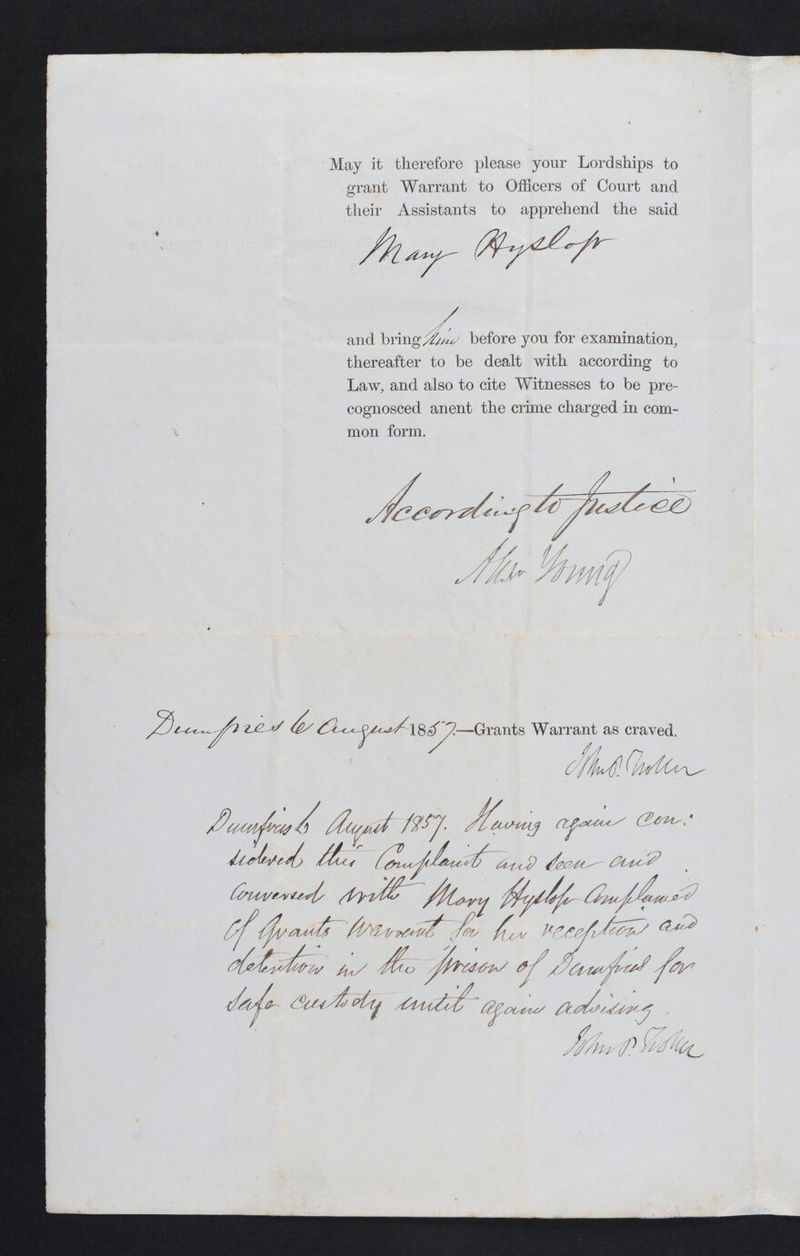 May it therefore please your Lordships to
grant Warrant to Officers of Court and
their Assistants to apprehend the said
Mary Hyslop
and bring him before you for examination,
thereafter to be dealt with according to
Law, and also to cite Witnesses to be pre-
cognosced anent the crime charged in com-
mon form.
According to Justice
Alexr Young
Dumfries 6 August 1857.—Grants Warrant as craved.
John P. Trotter
Dumfries 6 August 1857. Having again con:
sidered this Complaint and seen and
Conversed with Mary Hyslop Complained
of Grants Warrant for her reception and
detention in the prison of Dumfries for
safe custody until again advising.
John P. Trotter